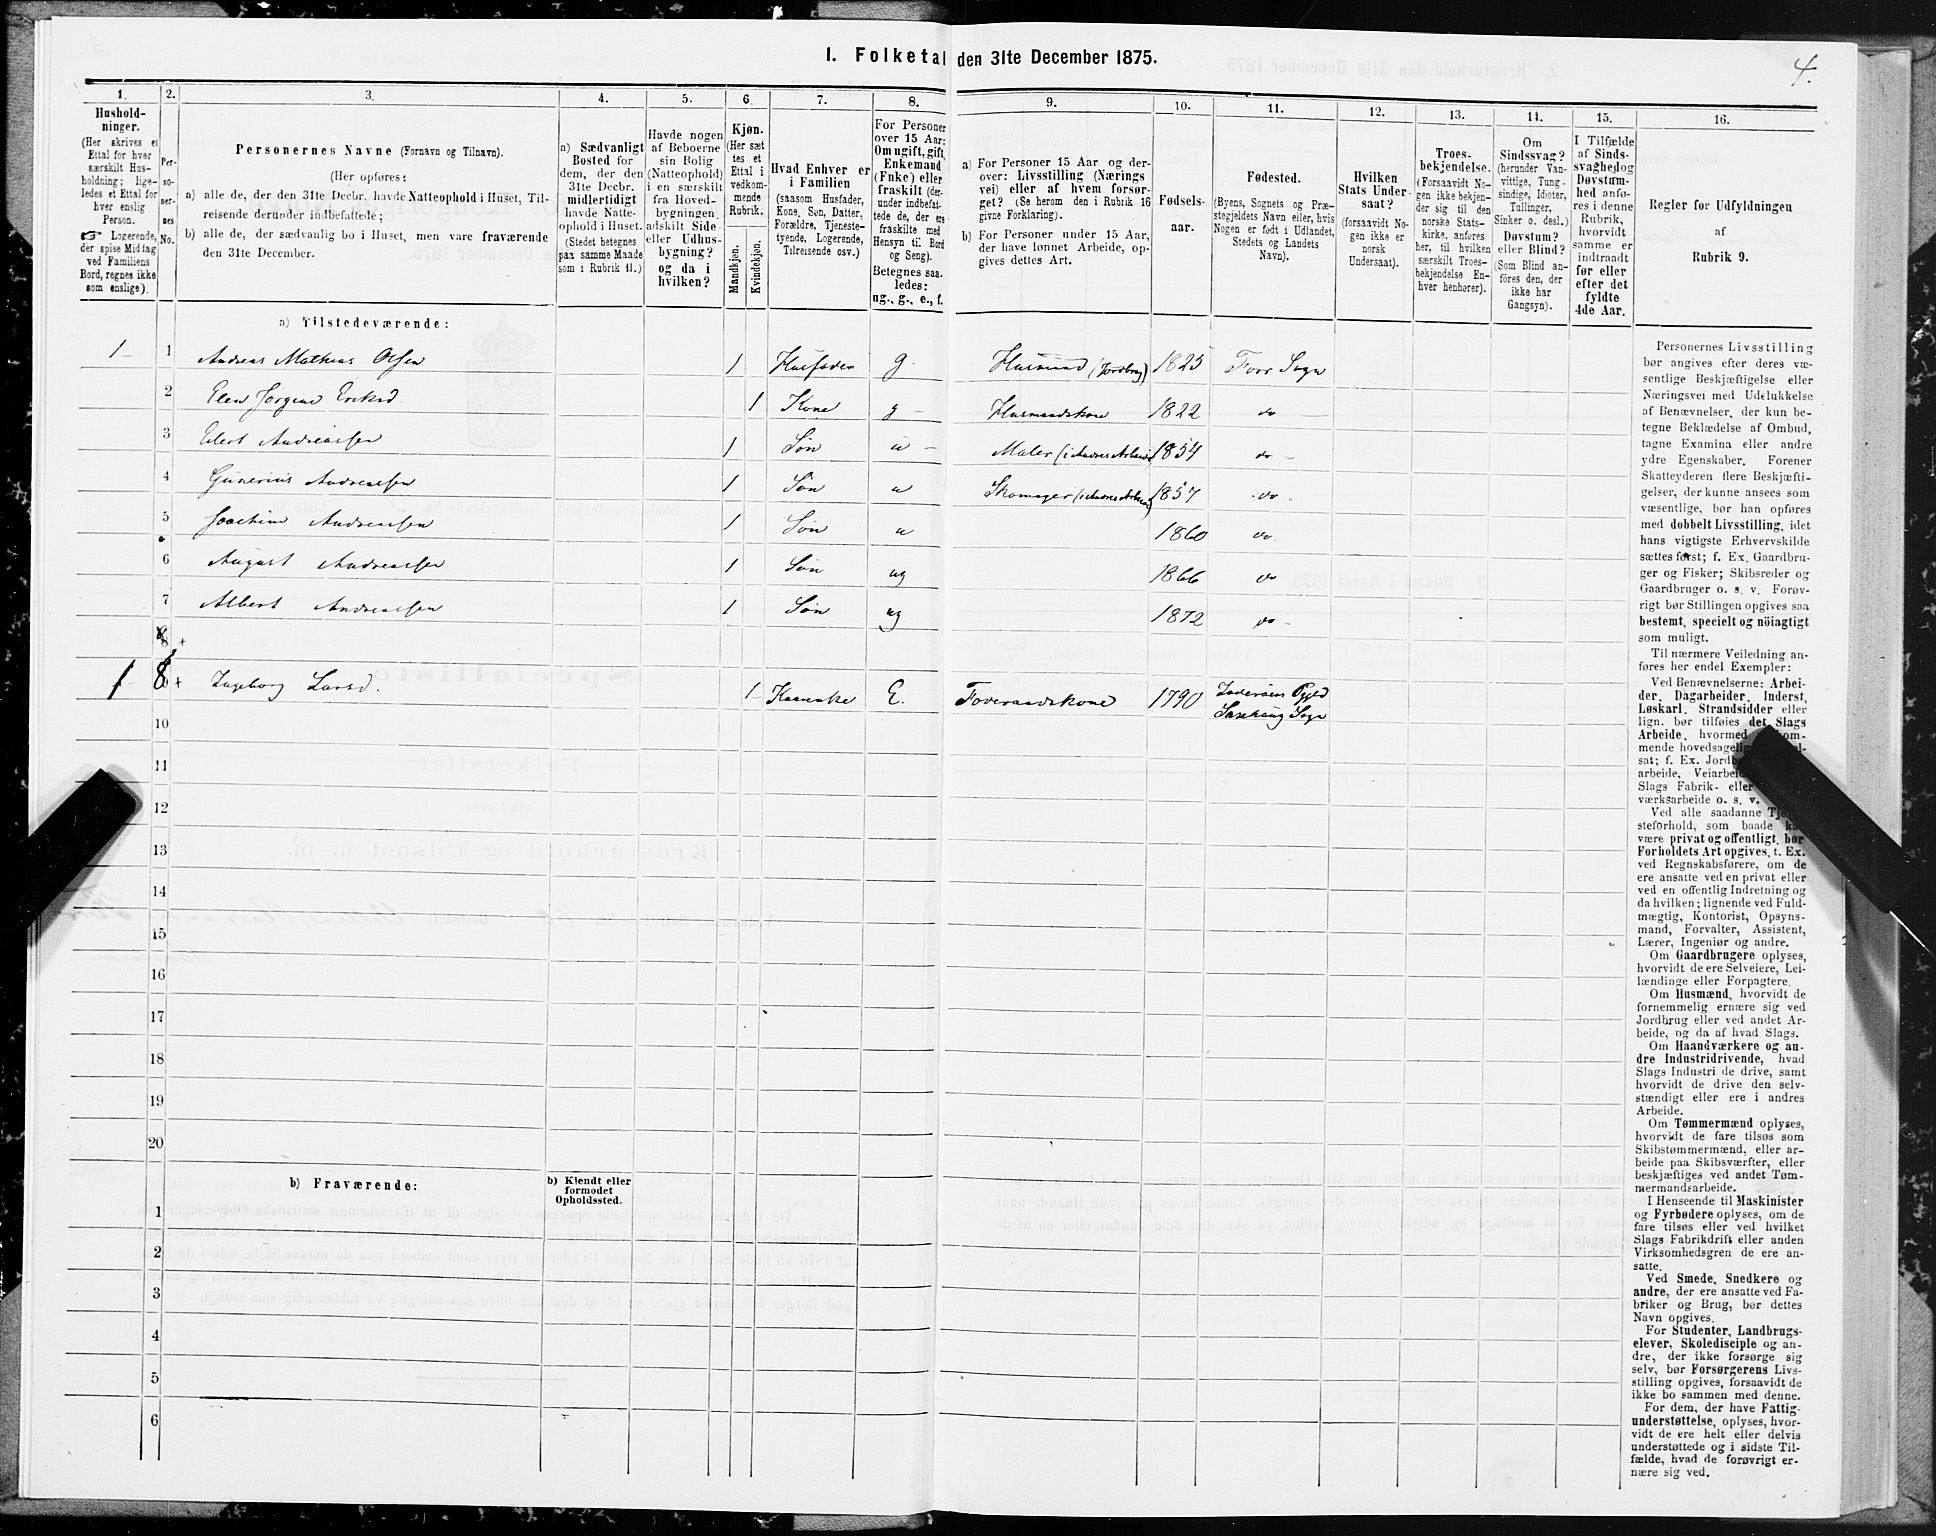 I. Folketal den 31te December 1875.
4.
1.
Hushold-
ninger.
(Her skrives et
Ettal for hver
særskilt Hus-
holdning; lige-
ledes et Ettal for
hver enslig
Person.
☞ Logerende,
der spise Middag
ved Familiens
Bord, regnes ikke
som enslige).
2.
Per-
so-
ner-
nes
No.
3.
Personernes Navne (Fornavn og Tilnavn).
(Her opføres:
a) alle de, der den 31te Decbr. havde Natteophold i Huset, Til-
reisende derunder indbefattede;
b) alle de, der sædvanlig bo i Huset, men vare fraværende
den 31te December.
4.
a) Sædvanligt
Bosted for
dem, der den
31te Decbr.
midlertidigt
havde Natte-
ophold i Huset.
(Stedet betegnes
paa samme Maade
som i Rubrik 11.)
5.
Havde nogen
af Beboerne
sin Bolig
(Natteophold)
i en særskilt
fra Hoved-
bygningen
adskilt Side-
eller Udhus-
bygning?
og da i
hvilken?
6.
Kjøn.
(Her sæt
tes et
Ettal i
vedkom-
mende
Rubrik.
Mandkjøn.
Kvindekjøn.
7.
Hvad Enhver er
i Familien
(saasom Husfader,
Kone, Søn, Datter,
Forældre, Tjeneste-
tyende, Logerende,
Tilreisende osv.)
8.
For Personer
over 15 Aar:
Om ugift, gift,
Enkemand
(Enke) eller
fraskilt (der-
under indbefat-
tede de, der ere
fraskilte med
Hensyn til Bord
og Seng).
Betegnes saa-
ledes:
ug., g., e., f.
9.
a) For Personer 15 Aar og der-
over: Livsstilling (Nærings
vei) eller af hvem forsør-
get? (Se herom den i Rubrik 16
givne Forklaring).
b) For Personer under 15 Aar,
der have lønnet Arbeide, op-
gives dettes Art.
10.
Fødsels-
aar.
11.
Fødested.
(Byens, Sognets og Præ-
stegjeldets Navn eller, hvis
Nogen er født i Udlandet,
Stedets og Landets
Navn).
12.
Hvilken
Stats Under-
saat?
(forsaavidt No-
gen ikke er
norsk
Undersaat).
13.
Troes-
bekjendelse.
(Forsaavidt No-
gen ikke bekjen-
der sig til den
norske Stats-
kirke, anføres
her, til hvilken
særskilt Troes-
bekjendelse En-
hver henhører).
14.
Om
Sindssvag?
(herunder Van-
vittige, Tung-
sindige, Idioter,
Tullinger,
Sinker o. desl.)
Døvstum?
eller Blind?
(Som Blind an-
føres den, der
ikke har
Gangsyn).
15.
I Tilfælde
af Sinds-
svaghed og
Døvstum-
hed anfø-
res i denne
Rubrik,
hvorvidt
samme er
indtraadt
før eller
efter det
fyldte
4de Aar.
16.
Regler for Udfyldningen
af
Rubrik 9.
a) Tilstedeværende:
1 1 Andreas Mathias Olsen 1 Husfader g. Husmand (Jordbrug) 1825 Foss Sogn
2 Elen Jorgine Eriksd 1 Kone g Husmandskone 1822 do
3 Edert Andreassen 1 Søn u Maler (i Andres Arbeide) 1854 do
4 Gunerius Andreassen 1 Søn u Skomager (i Andres Arbeide) 1857 do
5 Joachim Andreassen 1 Søn u 1860 do
6 August Andreassen 1 Søn ug 1866 do
7 Albert Andreassen 1 Søn ug 1872 do
8 +
1 8 + Ingeborg Larsd. 1 E. Foderaadskone 1790 Inderøens Pgjeld
Sogn
10
11
12
13
14
15
16
17
18
19
20
b) Fraværende:
b) Kjendt eller
formodet
Opholdssted.
1
2
3
4
5
6
Personernes Livsstilling
bør angives efter deres væ-
sentlige Beskjæftigelse eller
Næringsvei med Udelukkelse
af Benævnelser, der kun be-
tegne Beklædelse af Ombud,
tagne Examina eller andre
ydre Egenskaber. Forener
Skatteyderen flere Beskjæfti-
gelser, der kunne ansees som
væsentlige, bør han opføres
med dobbelt Livsstilling, idet
hans vigtigste Erhvervskilde
sættes først; f. Ex. Gaardbru-
ger og Fisker; Skibsreder og
Gaardbruger o. s. v. Forøv-
rigt bør Stillingen opgives saa
bestemt, specielt og nöiagtigt
som muligt.
Til nærmere Veiledning an-
føres her endel Exempler:
Ved Benævnelserne: Arbei-
der, Dagarbeider, Inderst,
Løskarl, Strandsidder eller
lign. bør tilføies det Slags
Arbeide, hvormed
mende hovedsagelig
sat; f. Ex.
arbeide,
Slags Fabrik- eller
værksarbeide o. s. v.
Ved alle saadanne
steforhold, som baade
være privat og offentligt, bør
Forholdets Art opgives, t. Ex.
ved Regnskabsførere, om de
ere ansatte ved en privat eller
ved en offentlig Indretning og
da hvilken; lignende ved Fuld-
mægtig, Kontorist, Opsyns-
mand, Forvalter, Assistent,
Lærer, Ingeniør og andre.
Om Gaardbrugere oplyses,
hvorvidt de ere Selveiere, Lei-
lændinge eller Forpagtere.
Om Husmænd, hvorvidt de
fornemmelig ernære sig ved
Jordbrug eller ved andet Ar-
beide, og da af hvad Slags.
Om Haandværkere og an-
dre Industridrivende, hvad
Slags Industri de drive, samt
hvorvidt de drive den selv-
stændigt eller ere i andres
Arbeide.
Om Tømmermænd oplyses,
hvorvidt de fare tilsøs som
Skibstømmermænd, eller ar-
beide paa Skibsværfter, eller
beskjæftiges ved andet Tøm-
mermandsarbeide.
I Henseende til Maskinister
og Fyrbødere oplyses, om de
fare tilsøs eller ved hvilket
Slags Fabrikdrift eller anden
Virksomhedsgren de ere an-
satte.
Ved Smede, Snedkere og
andre, der ere ansatte ved Fa-
briker og Brug, bør dettes
Navn opgives.
For Studenter, Landbrugs-
elever, Skoledisciple og an-
dre, der ikke forsørge sig
selv, bør Forsørgerens Livs-
stilling opgives, forsaavidt de
ikke bo sammen med denne.
For dem, der have Fattig-
understøttelse, oplyses, hvor-
vidt de ere helt eller delvis
understøttede og i sidste Til-
fælde, hvad de forøvrigt er-
nære sig ved.